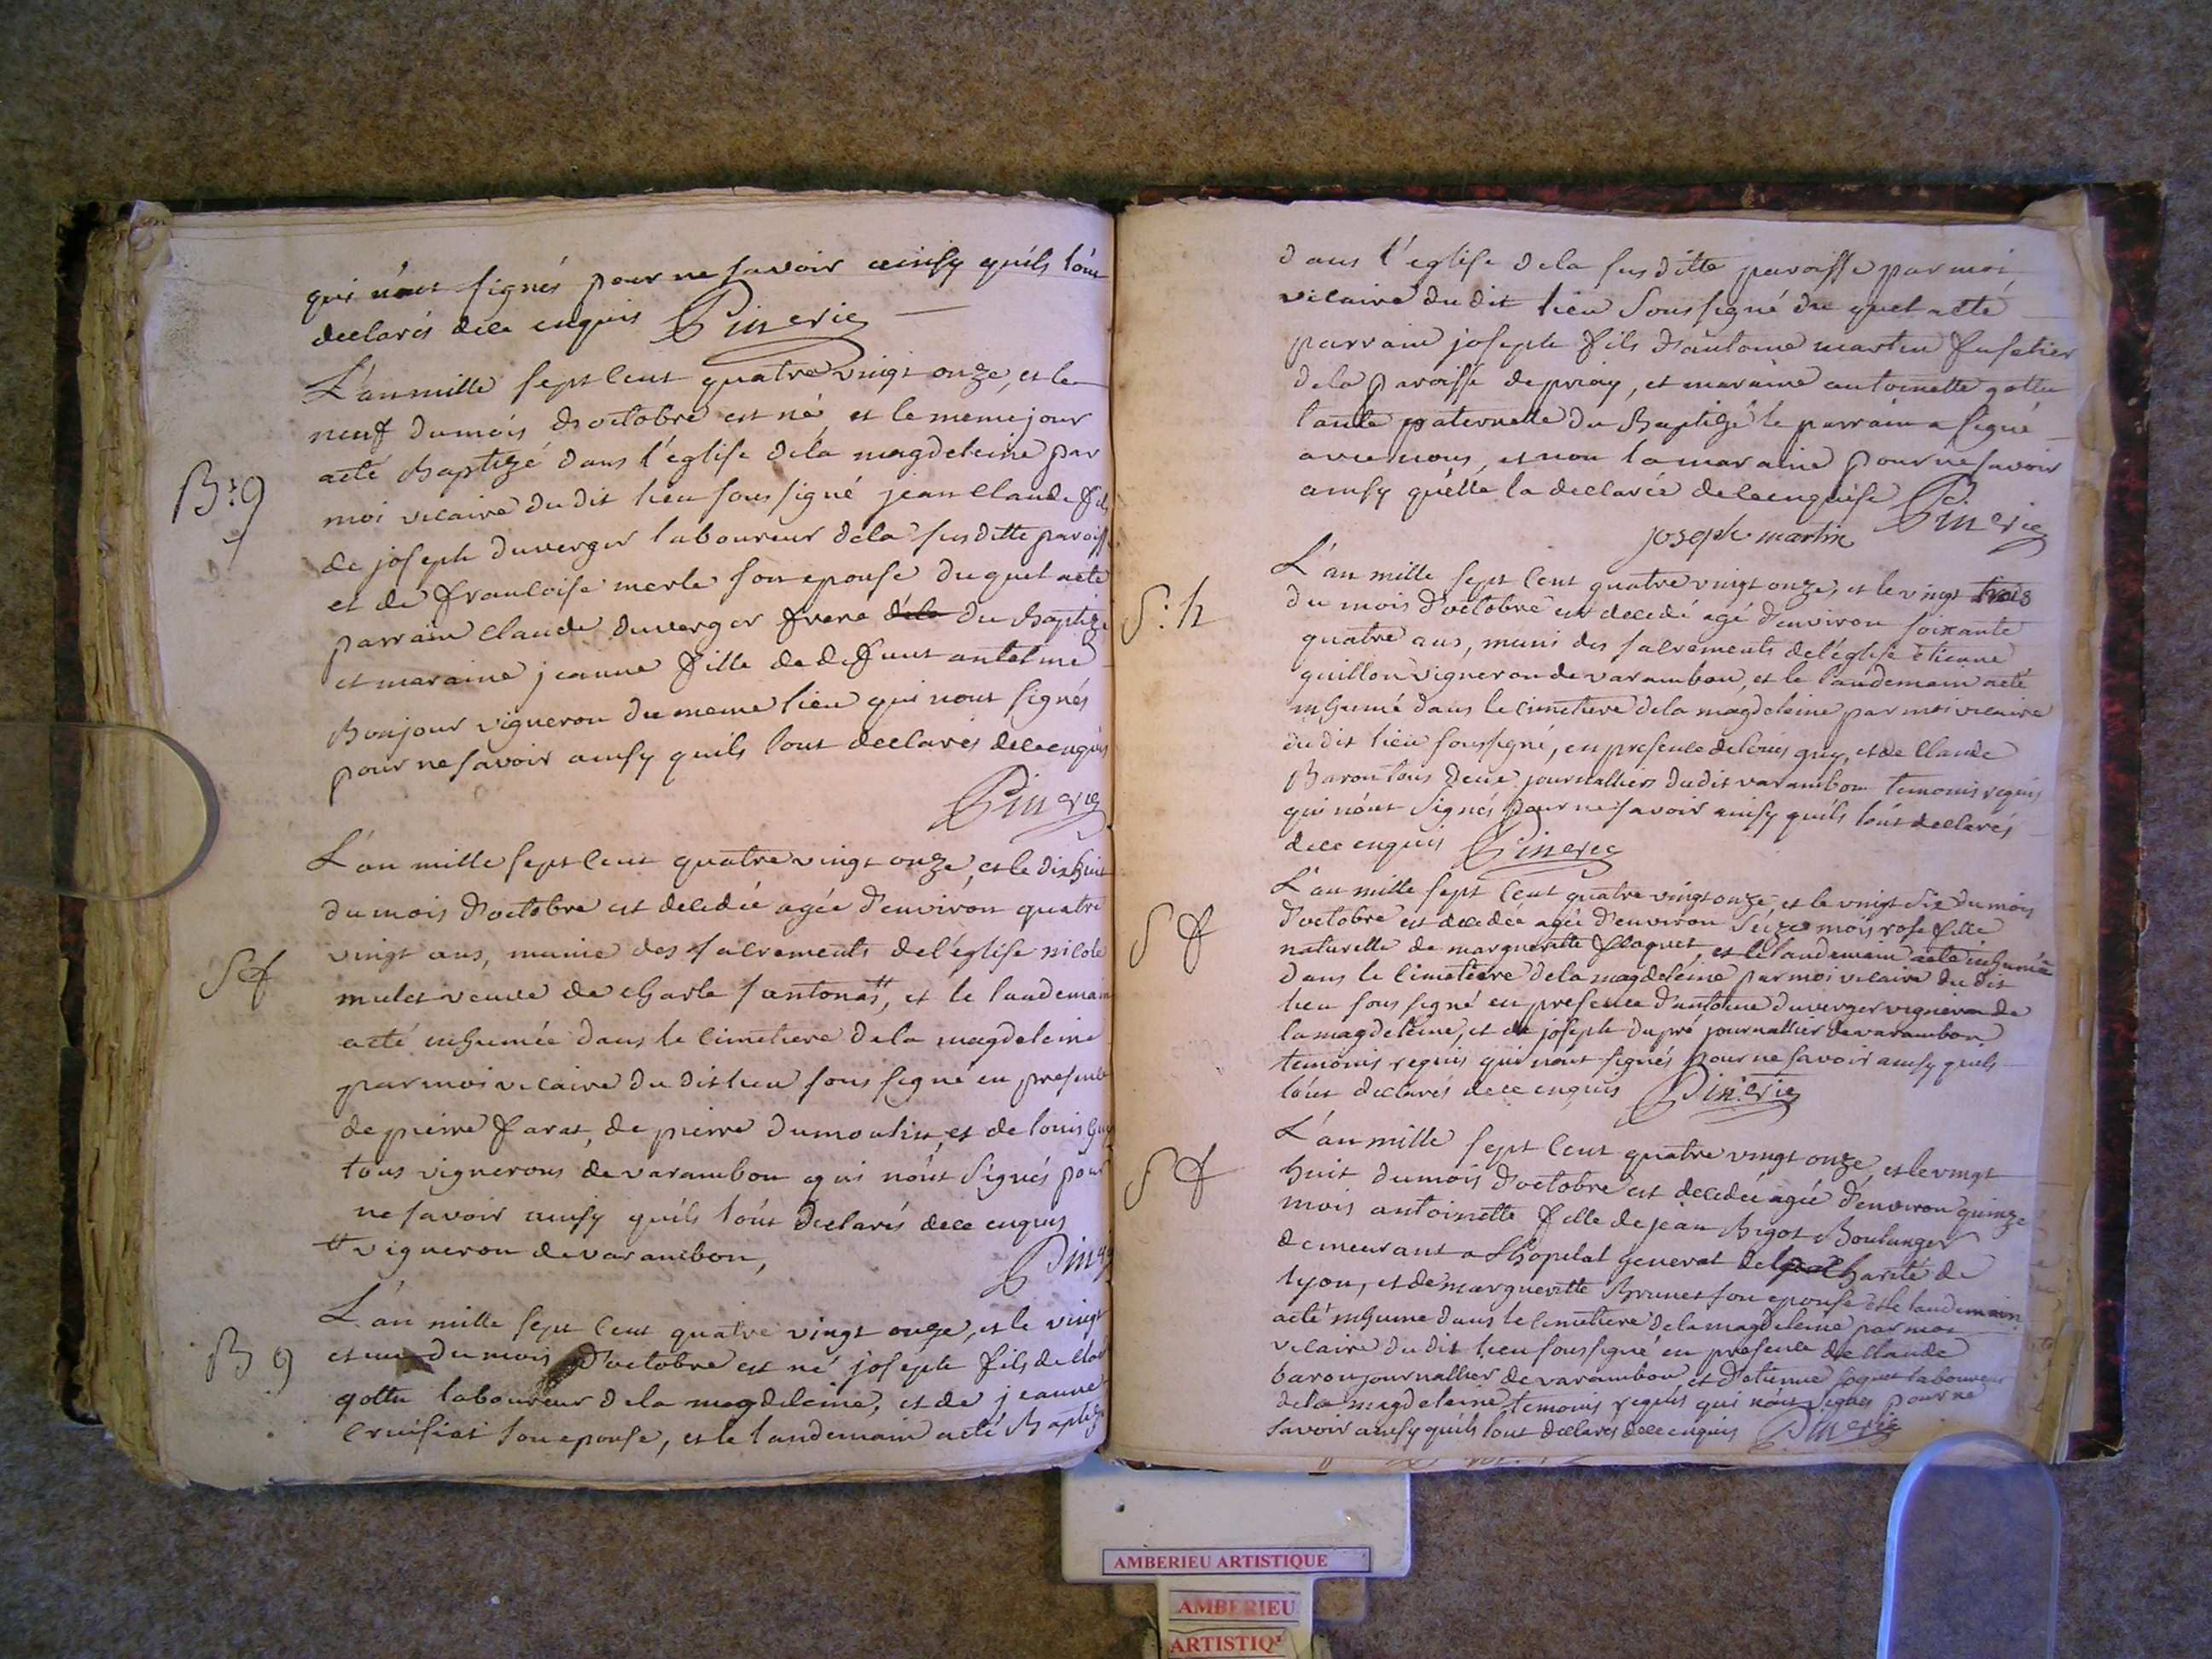 qui n'ont signés pour ne savoir ainsy quils l'ont
declarés de ce enquis Pinerie
L'an mille sept cent quatre vingt onze, et le
neuf du mois d'octobre est né, et le meme jour
B: g
aeté Baptizé dans l'eglise dela magdeleine par
moi vicaire du dit lieu sous signé jean claude fils
de joseph duverger laboureur dela susditte paroisse
et de francoise merle son epouse du quel aeté
parrain claude duverger frere dela du Baptizé
et maraine jeanne fille de defunt antelme
Bonjour vigneron du meme lieu qui nont signés
pour ne savoir ainsy quils l'ont declarés de ce enquis
Pinerie
L'an mille sept cent quatre vingt onze, et le dix huit
du mois d'octobre est decedée agée d'environ quatre
S f
vingt ans, munie des sacrements del'eglise nicole
mulet veuve de charle santonat#, et le landemain
aeté inhumée dans le cimetiere dela magdeleine
par moi vicaire du dit lieu sous signé en presence
de pierre farat, de pierre dumoulin, et de louis guy
tous vignerons de varambon qui n'ont signés pour
ne savoir ainsy quils l'ont declarés de ce enquis
# vigneron de varambon, Pinerie
L'an mille sept cent quatre vingt onze, et le vingt
B g
et un du mois d'octobre est né joseph fils de
gottu laboureur dela magdeleine, et de jeanne
son epouse, et le landemain aeté Baptizé
dans l'eglise dela susditte paroisse par moi
vicaire du dit lieu sous signé du quel aeté
parrain joseph fils d'antoine martin
dela paroisse de priay, et maraine antoinette gottu
tante paternelle du Baptizé le parrain a signé
avec nous, et non la maraine pour ne savoir
ainsy qu'elle la declarée de ce enquise Pinerie
joseph martin
L'an mille sept cent quatre vingt onze, et le vingt trois
S: h
du mois d'octobre est decedé agé d'environ soixante
quatre ans, muni des sacrements del'eglise etienne
guillon vigneron de varambon, et le landemain aeté
inhumé dans le cimetiere dela magdeleine par moi vicaire
du dit lieu soussigné, en presence de louis guy, et de claude
Baron tous deux journalliers du dit varambon temoins requis
qui n'ont signés pour ne savoir ainsy quils l'ont declarés
de ce enquis Pinerie
L'an mille sept cent quatre vingt onze, et le vingt six du mois
S f
d'octobre est decedée agée d'environ seize mois rose fille
naturelle de marguerite flaquet, et le landemain aeté inhumée
dans le cimetiere dela magdeleine par moi vicaire du dit
lieu sous signé en presence d'antoine duverger vigneron de
la magdeleine, et de joseph dupré journallier de varambon
temoins requis qui n'ont signés pour ne savoir ainsy quils
l'ont declarés de ce enquis Pinerie
L'an mille sept cent quatre vingt onze, et le vingt
S f
huit du mois d'octobre est decedée agée d'environ quinze
mois antoinette fille de jean Bigot Boulanger
demeurant a Lhopital general dela charité de
lyon, et de marguerite Brunet son epouse et le landemain
aeté inhume dans le cimetiere dela magdeleine par moi
vicaire du dit lieu soussigné en presence de claude
baron journallier de varambon et d'etienne laboureur
dela magdeleine temoins requis qui n'ont signés pour ne
savoir ainsy quils l'ont declarés de ce enquis Pinerie
AMBERIEU ARTISTIQUE
AMBERIEU
ARTISTIQ